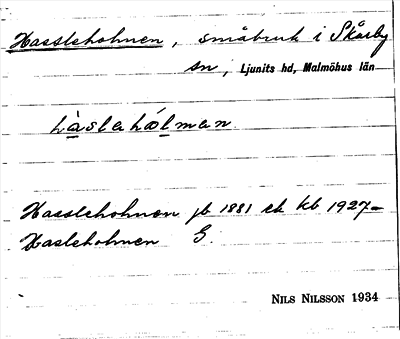 Hassleholmen, småbruk i Skårby
sn, Ljunits hd, Malmöhus län
hàslahólman
Hassleholmen jb 1881 ek kb 1927–
Hasleholmen G.
NILS NILSSON 1934